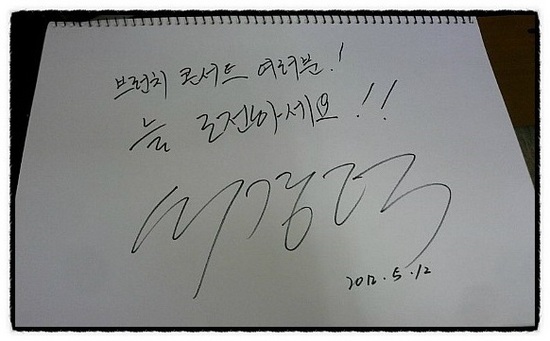 브런치 콘서트 여러분!
늘 도전하세요!!
서경덕
2012.5.12